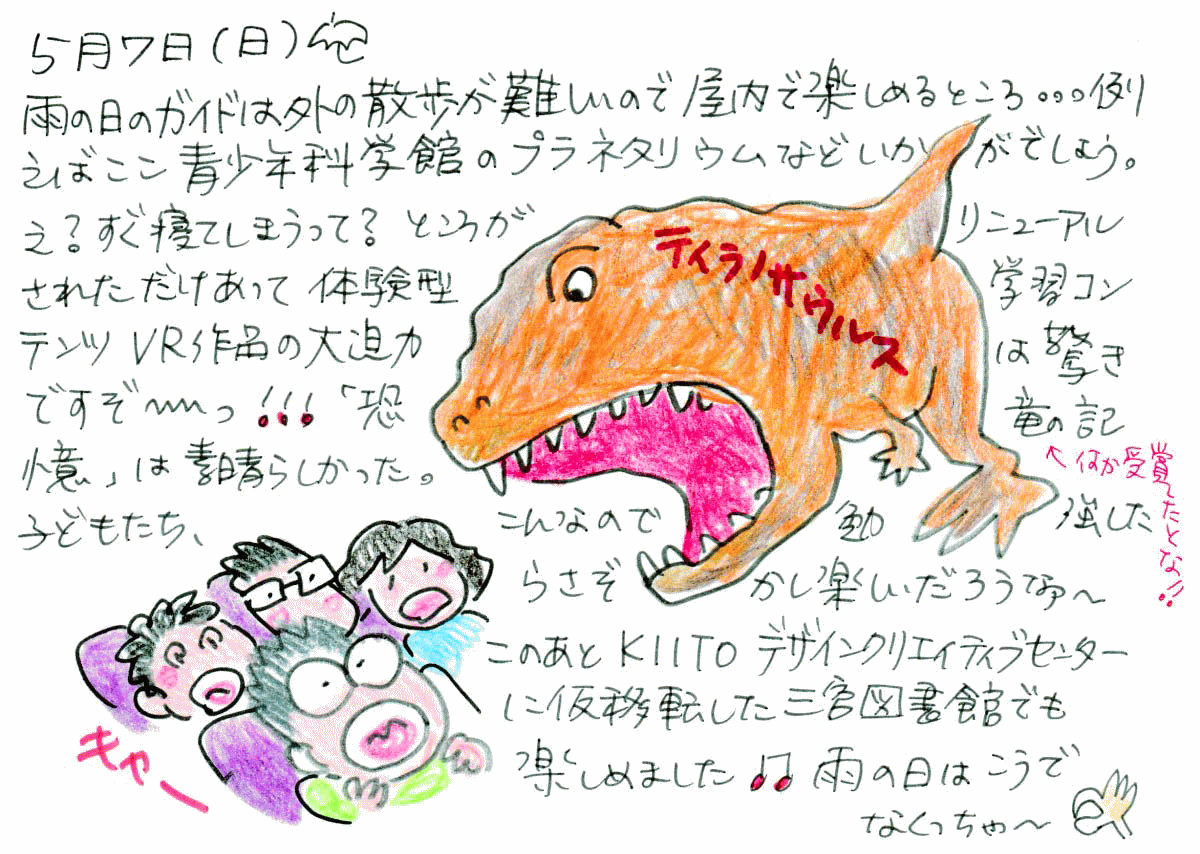 5月7日(日)
雨の日のガイドは外の散歩が難しいので屋内で楽しめるところ。。。例
えばここ 青少年科学館のプラネタリウムなどいかがでしょう。
え?すぐ寝てしまうって? ところが リニューアル
されただけあって 体験型 学習コン
テンツ VR作品の大迫力 は驚き
ですぞ〜っ!!!「恐 竜の記
憶」は素晴らしかった。 ←なんか受賞したとな!!
子どもたち、 こんなので 勉強した
らさぞ かし楽しいだろうなァ〜
このあと KIITO デザインクリエイティブセンター
に仮移転した三宮図書館でも
楽しめました♫ 雨の日はこうで
なくっちゃ〜
ティラノサウルス
キャー